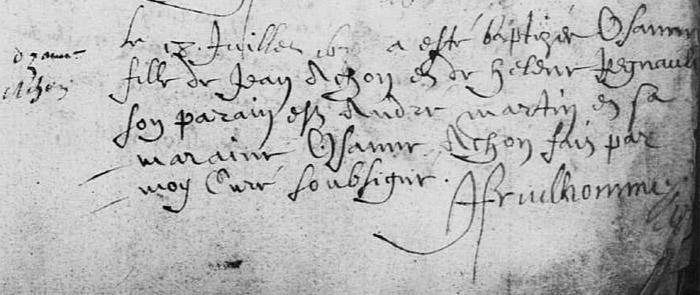 Osanne
Achon
Le 12 Juillet a esté baptizée Osanne
fille de Jean Achon et de helene Regnault
son parain est André martin et sa
maraine Osanne Achon fait par
moy Curé soubsigné.